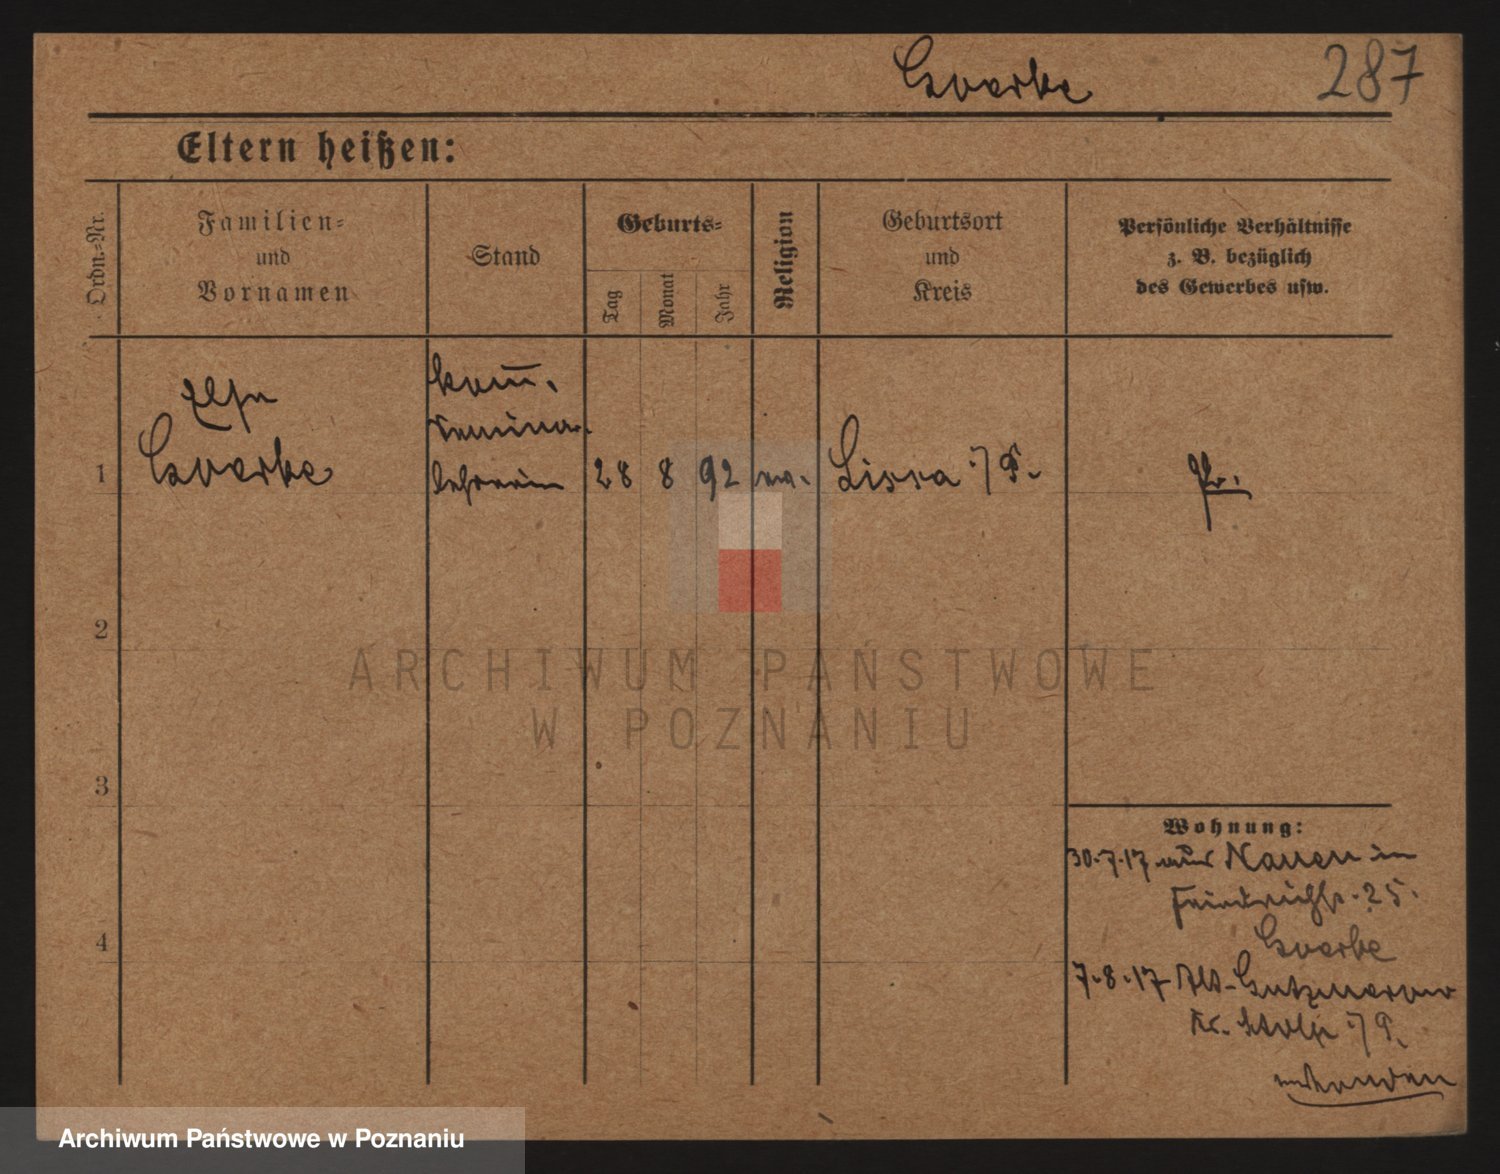 Goerke 287
Eltern heißen:
Ordn.-Nr.
Familien-
und
Vornamen
Stand
Geburts-
Tag
Monat
Jahr
Religion
Geburtsort
und
Kreis
Persönliche Verhältnisse
z. B. bezüglich
des Gewerbes usw.
Else
Goerke
kom.
Seminar
lehrerin
1 28 8 92 ev. Lissa i/P. Pr.
2
3
4
ARCHIWUM PAŃSTWOWE
W POZNANIU
Wohnung:
30.7.17 aus Nauen in
Friedrichstr. 25.
Goerke
7.8.17 Alt-Gutzmerow
Kr. Stolp i/P.
Archiwum Państwowe w Poznaniu